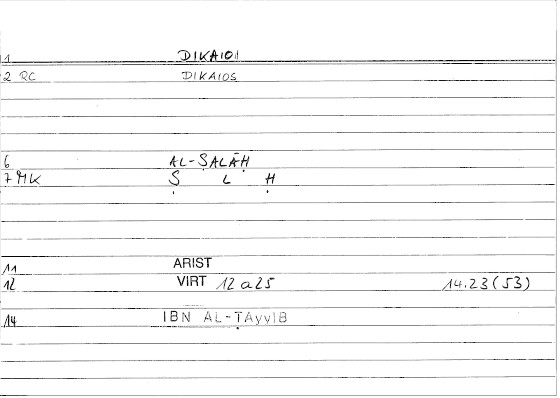 1 DIKAIOI
2 RC DIKAIOS
6 AL-ṢALĀḤ
7 MK Ṣ L Ḥ
11 ARIST
12 VIRT 12a25 14.23(53)
14 IBN AL-ṬAyyIB